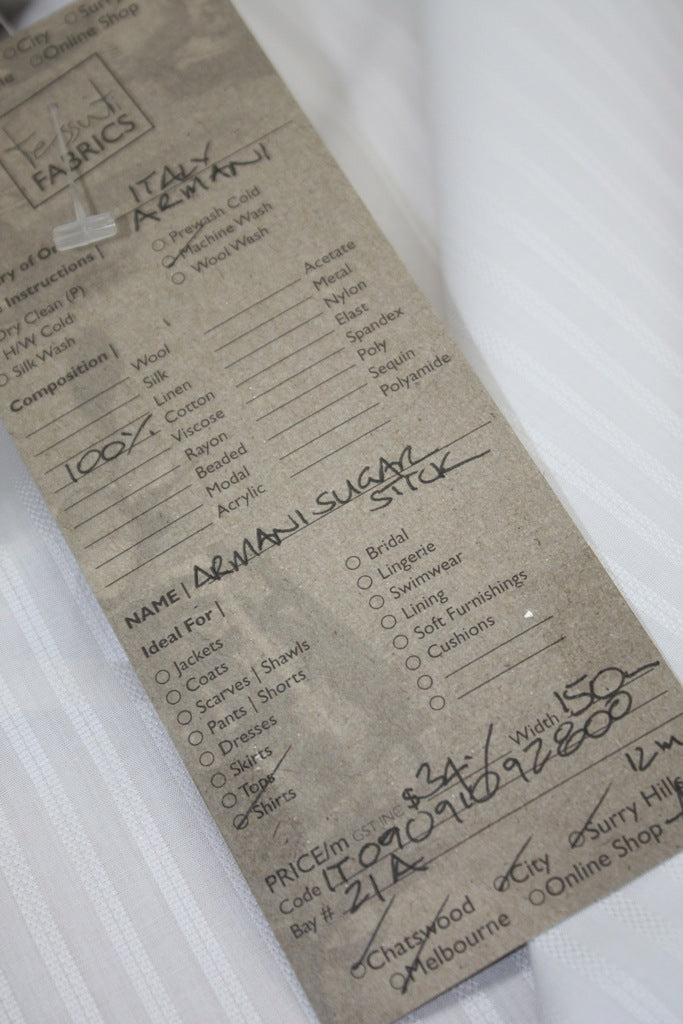 City Surry
Online Shop
Tessuti
FABRICS
ITALY
ARMANI
Prewash Cold
Machine Wash
Wool Wash
Instructions |
Dry Clean (P)
H/W Cold
Silk Wash
Composition |
Wool
Silk
Linen
100% Cotton
Viscose
Rayon
Beaded
Modal
Acrylic
Acetate
Metal
Nylon
Elast
Spandex
Poly
Sequin
Polyamide
NAME | ARMANI SUGAR
STICK
Ideal For |
Jackets
Coats
Scarves | Shawls
Pants | Shorts
Dresses
Skirts
Tops
Shirts
Bridal
Lingerie
Swimwear
Lining
Soft Furnishings
Cushions
PRICE/m GST INC $34.- Width 150-
Code IT09091092800
Bay # 21A 12m
Chatswood City Surry Hills
Melbourne Online Shop